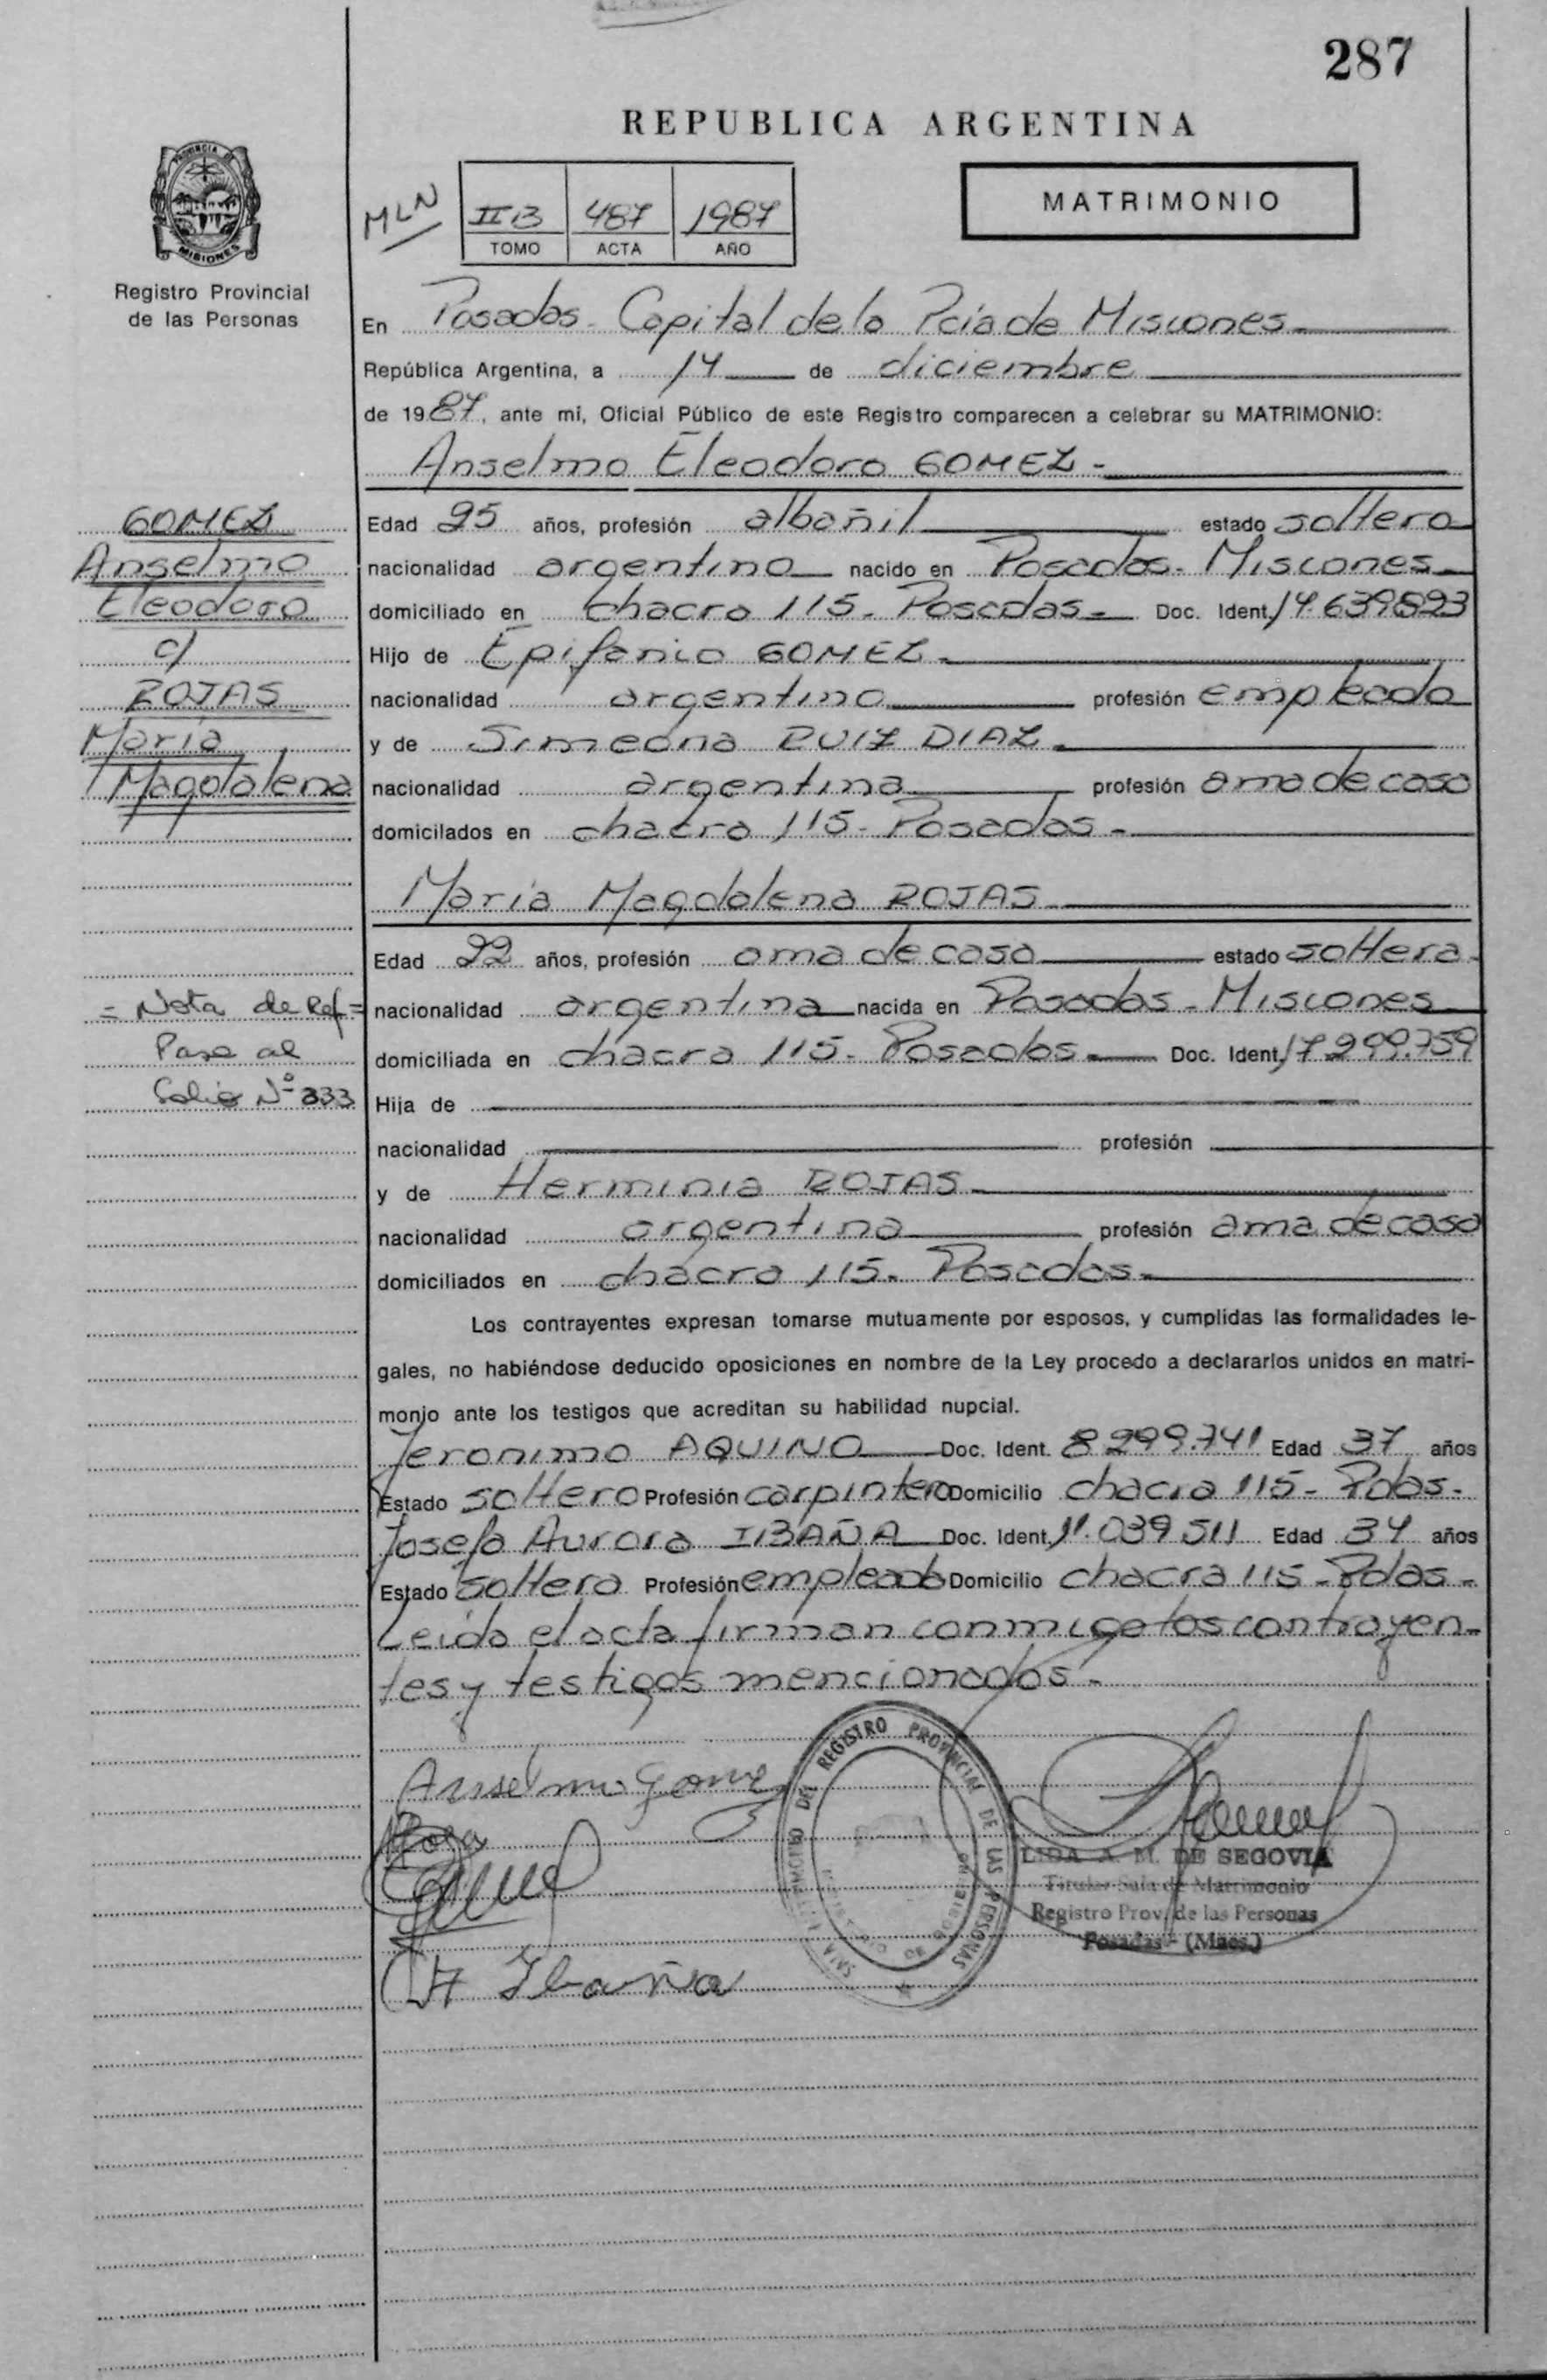 287
REPUBLICA ARGENTINA
MATRIMONIO
MLN
II B 487 1987
TOMO ACTA AÑO
PROVINCIA DE
MISIONES
Registro Provincial
de las Personas
En Posadas - Capital de la Pcia de Misiones
República Argentina, a 14 de diciembre
de 1987, ante mí, Oficial Público de este Registro comparecen a celebrar su MATRIMONIO:
Anselmo Eleodoro GOMEZ -
GOMEZ
Anselmo
Eleodoro
c/
ROJAS
María
Magdalena
Edad 25 años, profesión albañil estado soltero
nacionalidad argentino nacido en Posadas - Misiones
domiciliado en chacra 115 - Posadas - Doc. Ident. 14.639.893
Hijo de Epifanio GOMEZ -
nacionalidad argentino profesión empleado
y de Simeona RUIZ DIAZ -
nacionalidad argentina profesión ama de casa
domicilados en chacra 115 - Posadas -
María Magdalena ROJAS
Edad 22 años, profesión ama de casa estado soltera -
nacionalidad argentina nacida en Posadas - Misiones
domiciliada en chacra 115 - Posadas - Doc. Ident. 17.299.759
= Nota de Ref =
Pase al
Folio Nº 333
Hija de
nacionalidad profesión
y de Herminia ROJAS
nacionalidad argentina profesión ama de casa
domiciliados en chacra 115 - Posadas -
Los contrayentes expresan tomarse mutuamente por esposos, y cumplidas las formalidades le-
gales, no habiéndose deducido oposiciones en nombre de la Ley procedo a declararlos unidos en matri-
monio ante los testigos que acreditan su habilidad nupcial.
Jeronimo AQUINO Doc. Ident. 8.299.741 Edad 37 años
Estado soltero Profesión carpintero Domicilio chacra 115 - Pdas -
Josefa Aurora IBAÑA Doc. Ident. 11.039.511 Edad 34 años
Estado soltera Profesión empleada Domicilio chacra 115 - Pdas -
Leída el acta firman conmigo los contrayen-
tes y testigos mencionados -
Anselmo Gomez
Ibaña
DEL REGISTRO PROVINCIAL DE LAS PERSONAS
MINISTERIO DE GOBIERNO
LIDA A. M. DE SEGOVIA
Titular Sala de Matrimonio
Registro Prov. de las Personas
Posadas - (Mnes.)